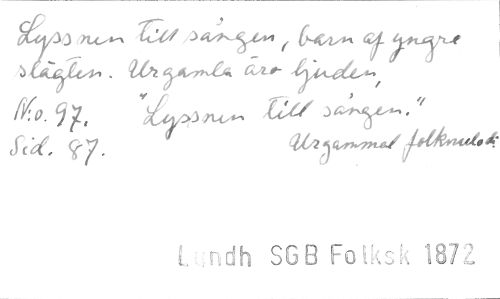 Lyssnen till sången, barn af yngre
slägten. Urgamla äro ljuden,
N:o. 97. "Lyssnen till sången."
Sid. 87. Urgammal folkmelodi
Lundh SGB Folksk 1872